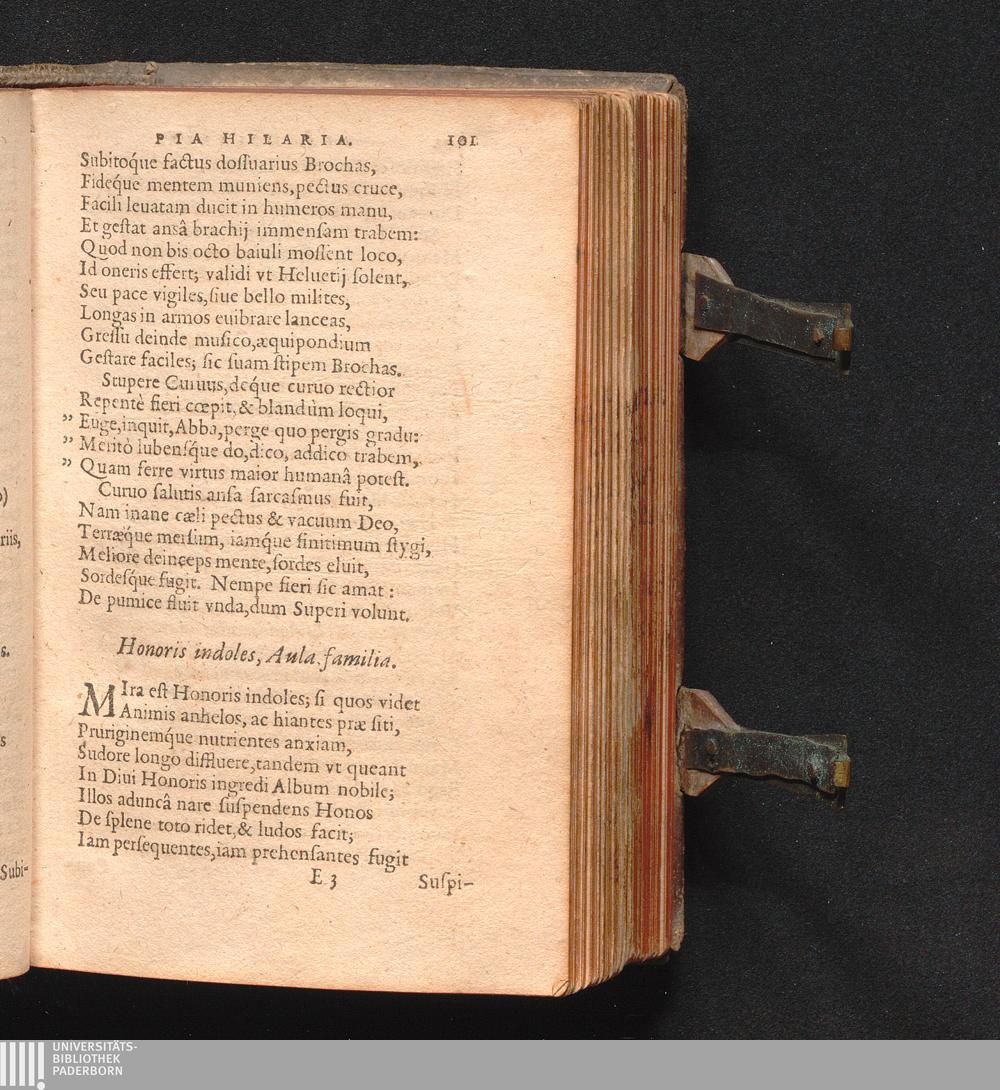 PIA HILARIA. 101
Subitoq́ue factus dossuarius Brochas,
Fideq́ue mentem muniens, pectus cruce,
Facili leuatam ducit in humeros manu,
Et gestat ansâ brachij immensam trabem:
Quod non bis octo baiuli mossent loco,
Id oneris effert; validi vt Heluetij solent,
Seu pace vigiles, siue bello milites,
Longas in armos euibrare lanceas,
Gressu deinde musico, æquipondium
Gestare faciles; sic suam stipem Brochas.
Stupere Curuus, deq́ue curuo rectior
Repentè fieri cœpit, & blandùm loqui,
” Euge, inquit, Abba, perge quo pergis gradu:
” Meritò lubensq́ue do, dico, addico trabem,
” Quam ferre virtus maior humanâ potest.
Curuo salutis ansa sarcasmus fuit,
Nam inane cæli pectus & vacuum Deo,
Terræq́ue mersum, iamq́ue finitimum stygi,
Meliore deinceps mente, sordes eluit,
Sordesq́ue fugit. Nempe fieri sic amat:
De pumice fluit vnda, dum Superi volunt.
Honoris indoles, Aula familia.
MIra est Honoris indoles; si quos videt
Animis anhelos, ac hiantes præ siti,
Pruriginemq́ue nutrientes anxiam,
Sudore longo diffluere, tandem vt queant
In Diui Honoris ingredi Album nobile;
Illos aduncâ nare suspendens Honos
De splene toto ridet, & ludos facit;
Iam persequentes, iam prehensantes fugit
E 3 Suspi-
)
riis,
s.
s
Subi-
UNIVERSITÄTS-
BIBLIOTHEK
PADERBORN